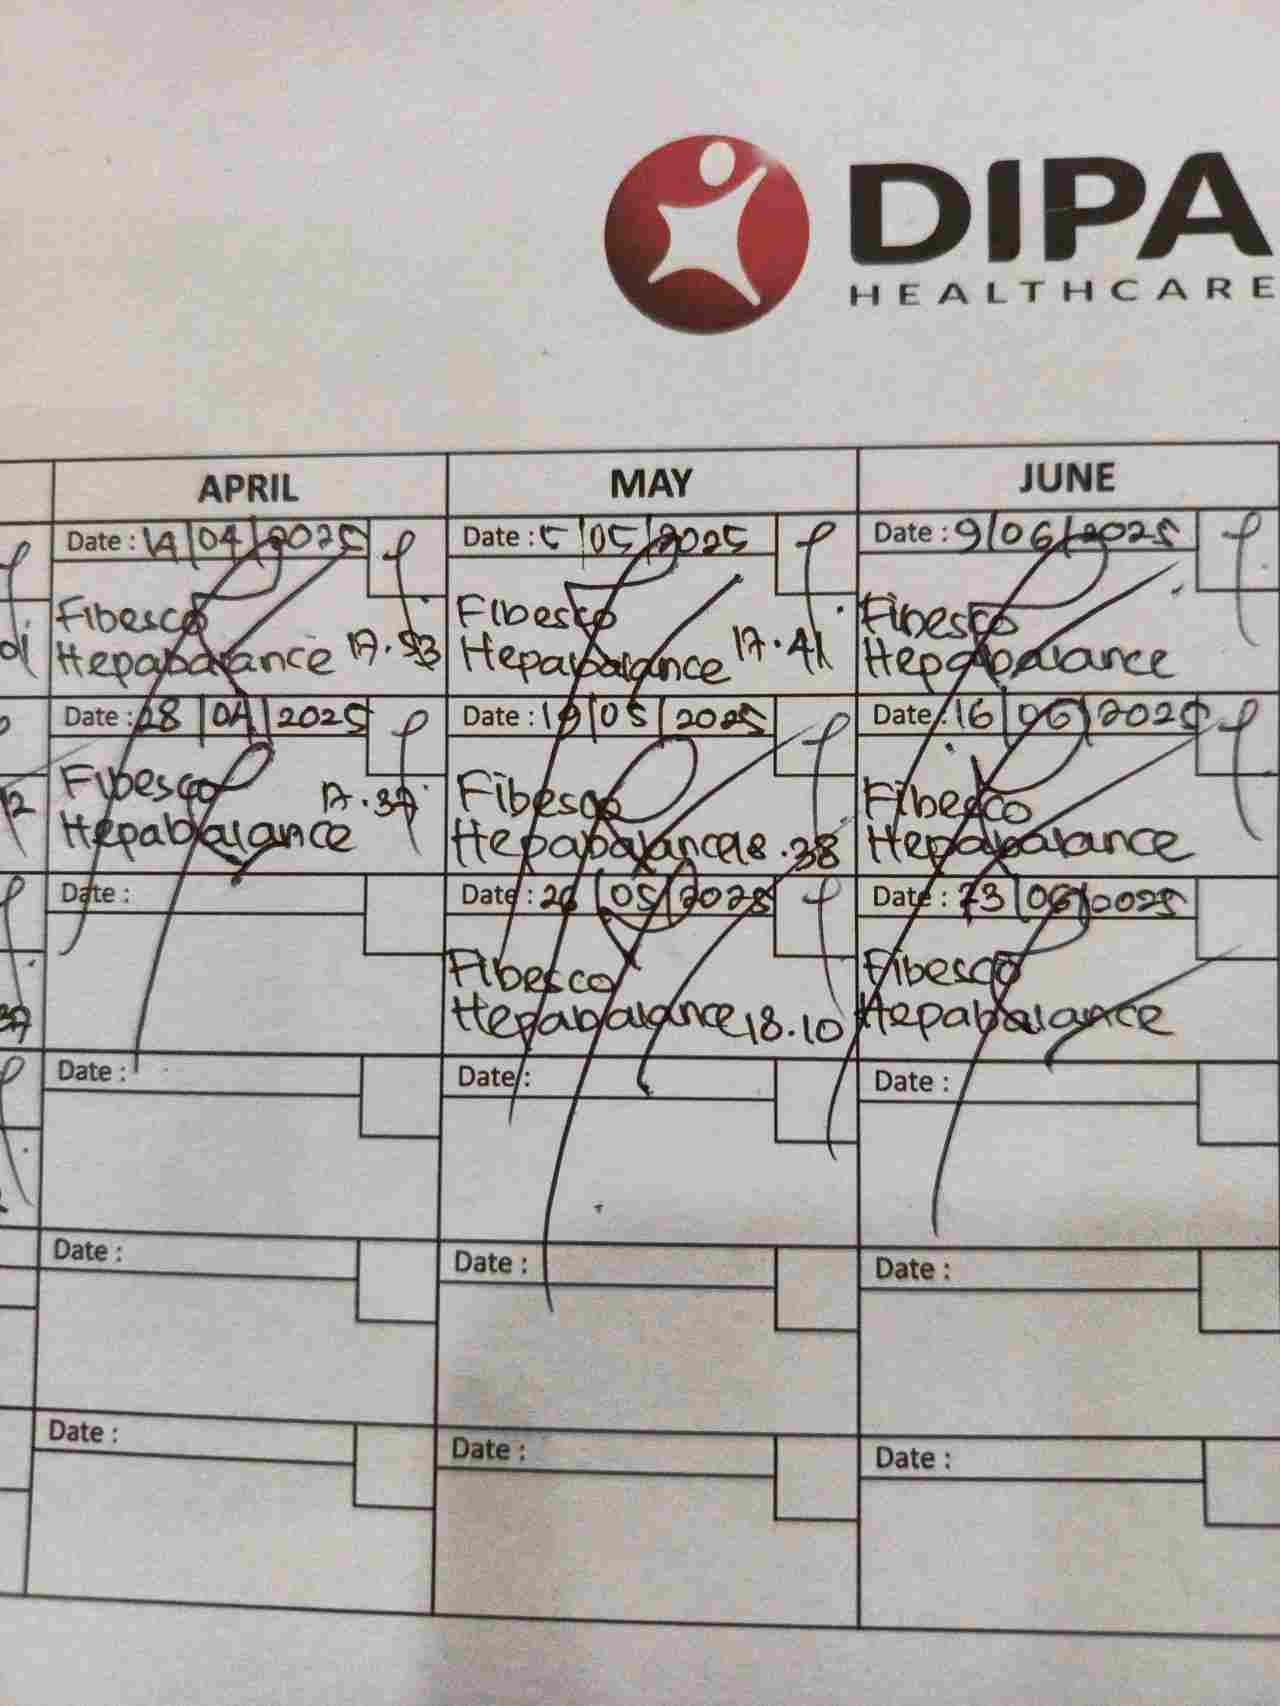 DIPA
HEALTHCARE
APRIL
MAY
JUNE
Date : 14/04/2025
Date : 5/05/2025
Date : 9/06/2025
Fibesco
Hepabalance 17.53
Fibesco
Hepabalance 17.41
Fibesco
Hepabalance
Date : 28/04/2025
Date : 19/05/2025
Date : 16/06/2025
Fibesco 17.37
Hepabalance
Fibesco
Hepabalance 18.38
Fibesco
Hepabalance
Date :
Date : 26/05/2025
Date : 23/06/2025
Fibesco
Hepabalance 18.10
Fibesco
Hepabalance
Date :
Date :
Date :
Date :
Date :
Date :
Date :
Date :
Date :